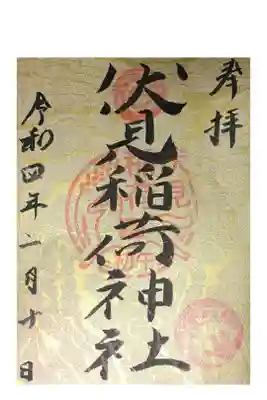 奉拝
伏見稲荷神社
令和四年二月十八日